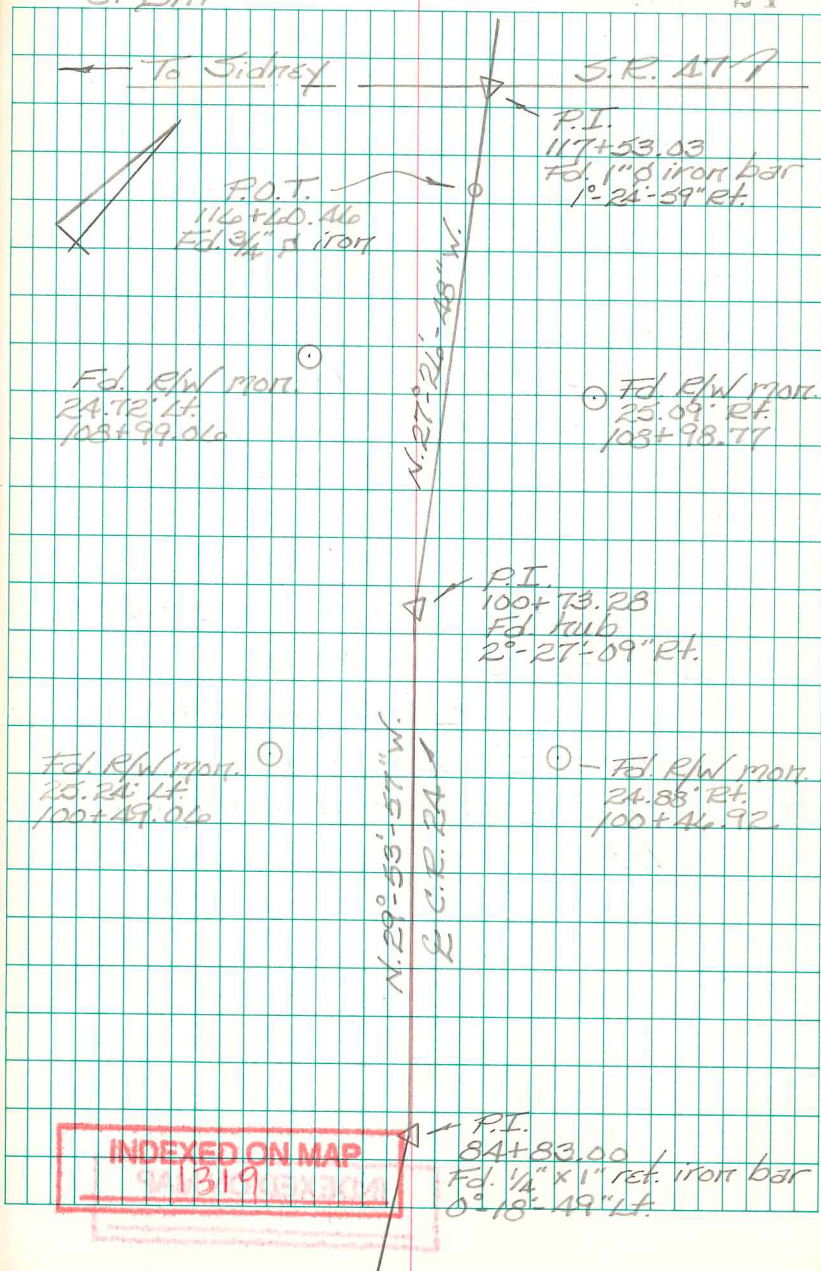 To Sidney
S.R. 47
P.I.
117+53.03
Fd. 1"ø iron bar
1°-24'-59" Rt.
P.O.T.
116+60.46
Fd. 3/4" ø iron
N.27°-26'-48"W.
Fd. R/W mon.
24.72' Lt.
108+99.06
Fd R/W mon.
25.09' Rt.
108+98.77
P.I.
100+73.28
Fd. hub
2°-27'-09" Rt.
Fd. R/W mon.
25.24' Lt.
100+49.06
Fd. R/W mon.
24.88' Rt.
100+46.92
N.29°-53'-57"W.
℄ C.R. 24
P.I.
84+83.00
Fd. 1/4" x 1" ret. iron bar
0°-18'-49" Lt.
INDEXED ON MAP
1319